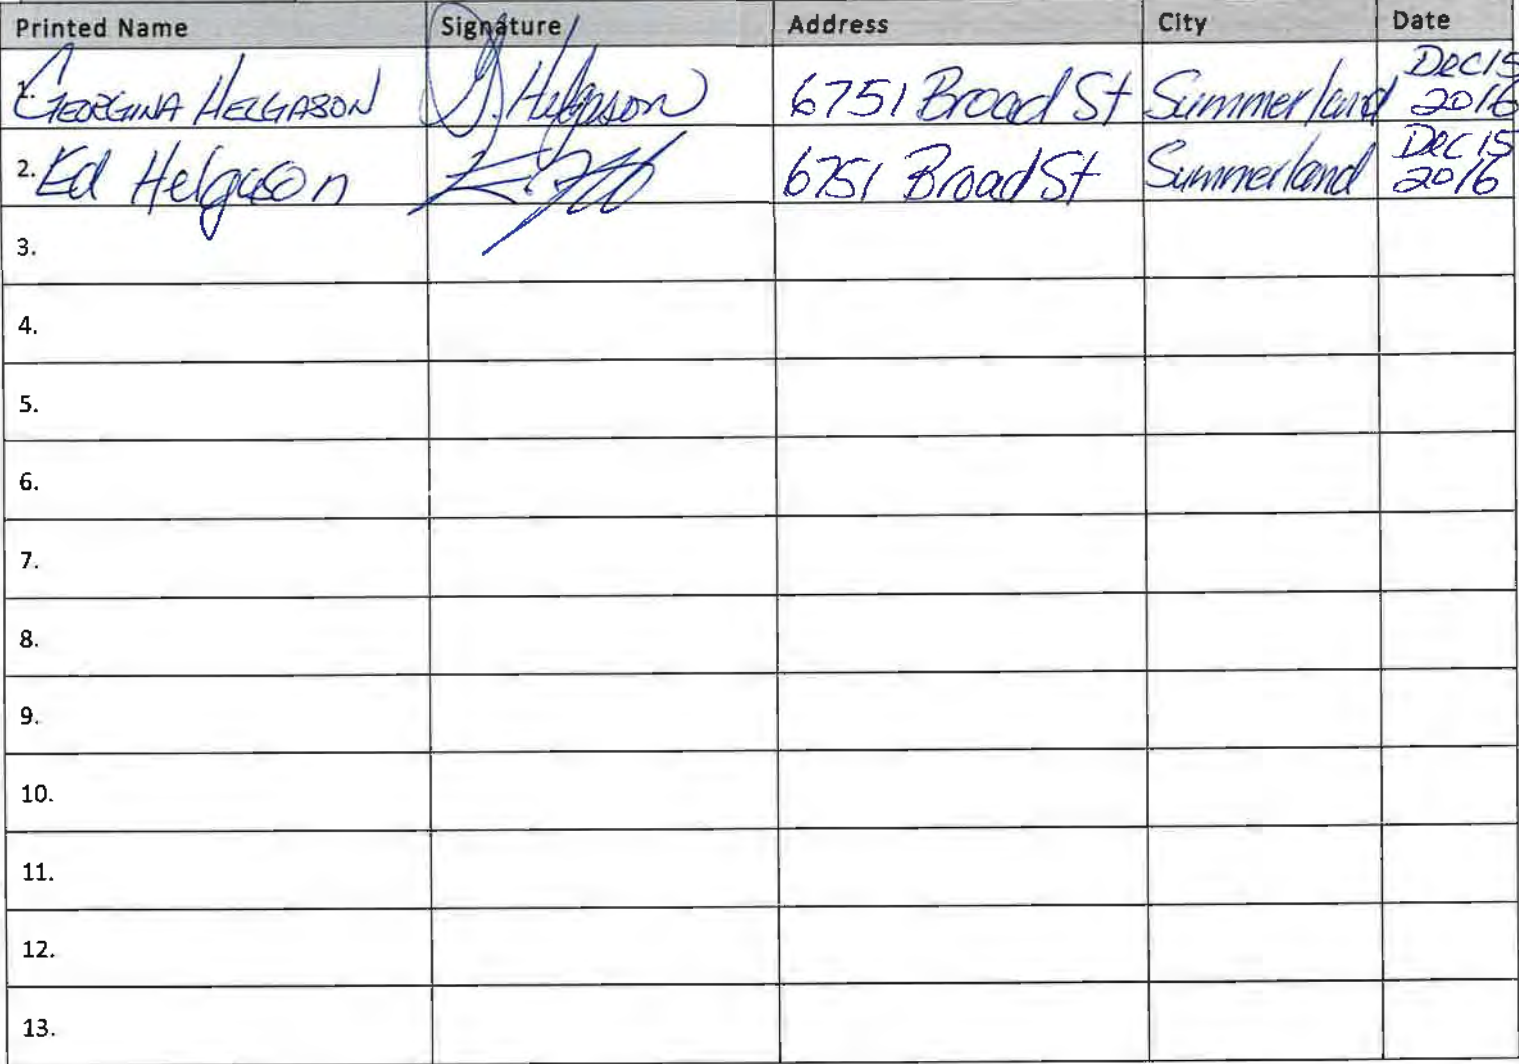 Printed Name Signature Address City Date
1. GEORGINA HELGASON G. Helgason 6751 Broad St Summerland Dec 15 2016
2. Ed Helgason 6751 Broad St Summerland Dec 15 2016
3.
4.
5.
6.
7.
8.
9.
10.
11.
12.
13.